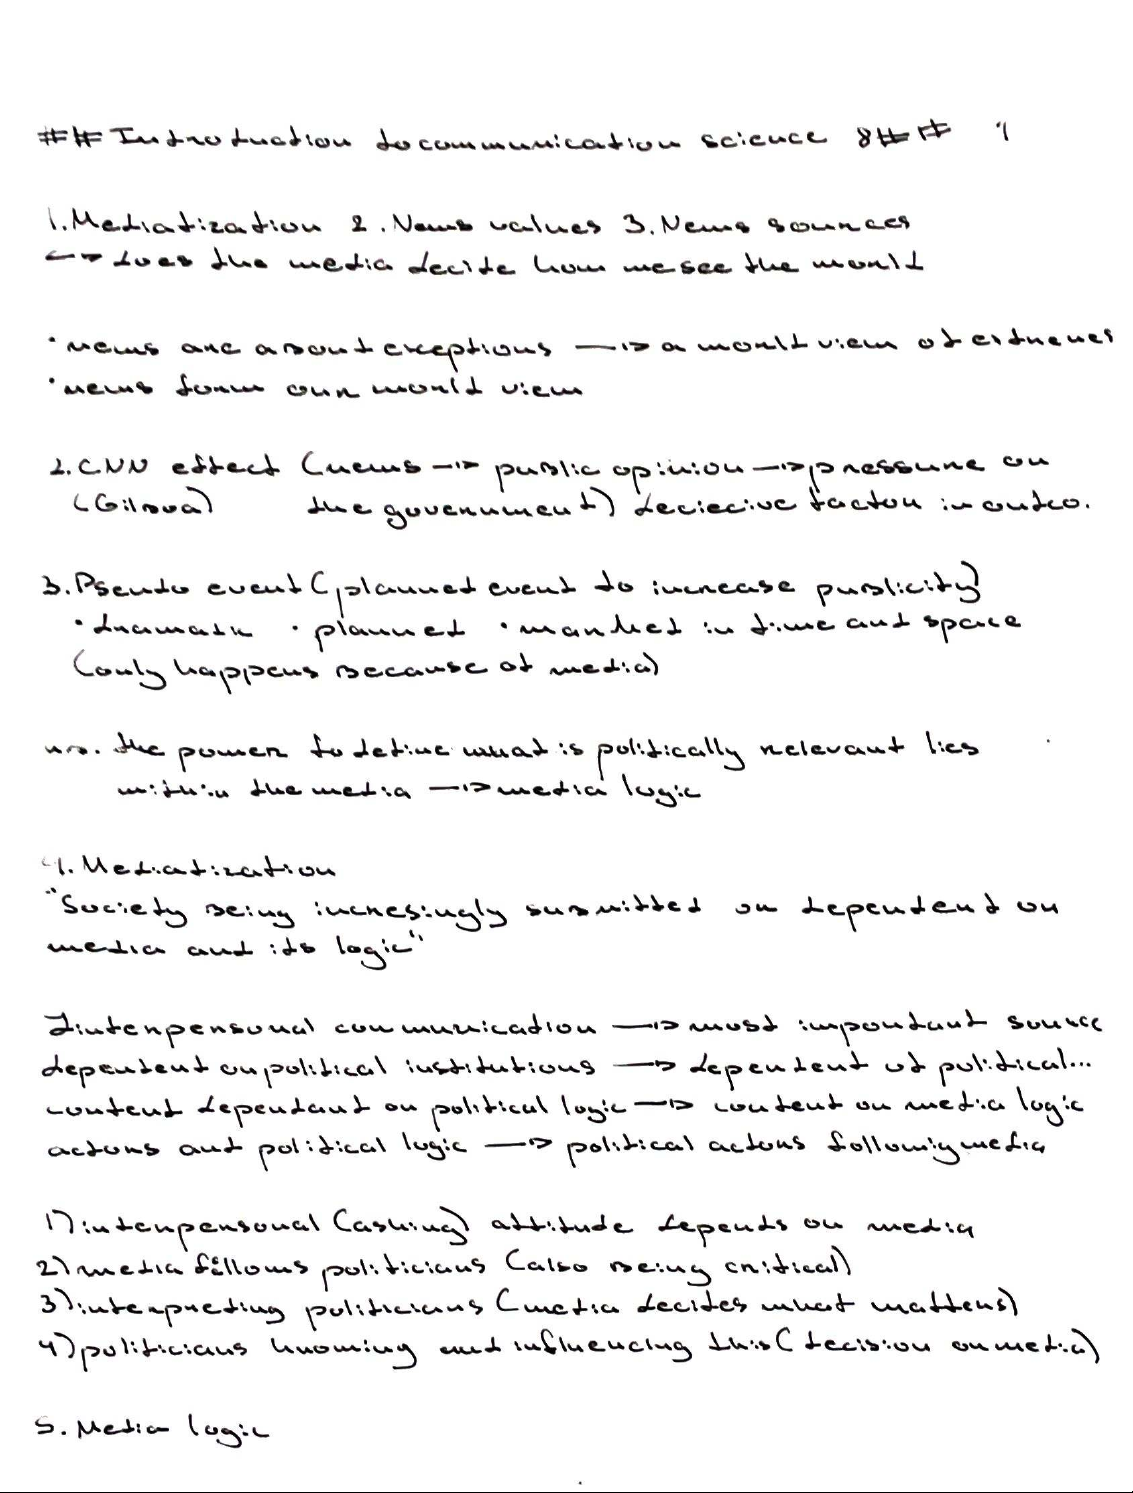 ## Introduction to communication science 8## 1
1. Mediatization 2. News values 3. News sources
<-> does the media decide how we see the world
• news are about exceptions -> a world view of extremes
• news form our world view
2. CNN effect (news -> public opinion -> pressure on
(Gilboa) the government) deciecive factor in outco.
3. Pseudo event (planned event to increase publicity)
• dramatic • planned • marked in time and space
(only happens because of media)
n.b. the power to define what is politically relevant lies
within the media -> media logic
4. Mediatization
"Society being incresingly submitted or dependent on
media and its logic"
Interpersonal communication -> most important source
dependent on political institutions -> dependent of political...
content dependant on political logic -> content on media logic
actors and political logic -> political actors followig media
1) interpersonal (asking) attitude depends on media
2) media follows politicians (also being critical)
3) interpreting politicians (media decides what matters)
4) politicians knowing and influencing this (decision on media)
5. Media logic